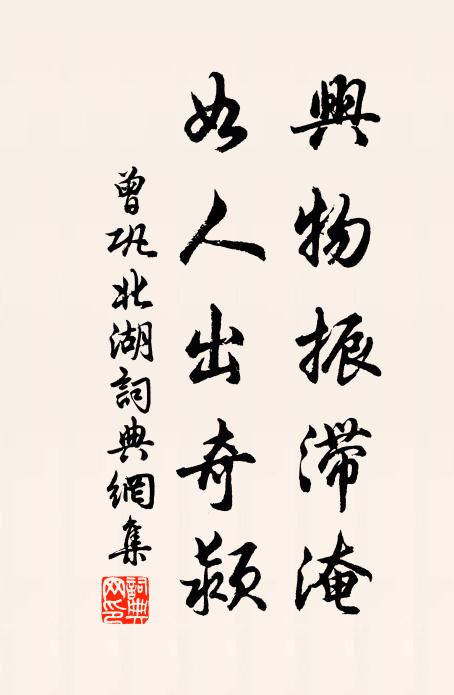 興物振滯淹
如人出奇穎
曾巩北湖詞典網集
詞典网印